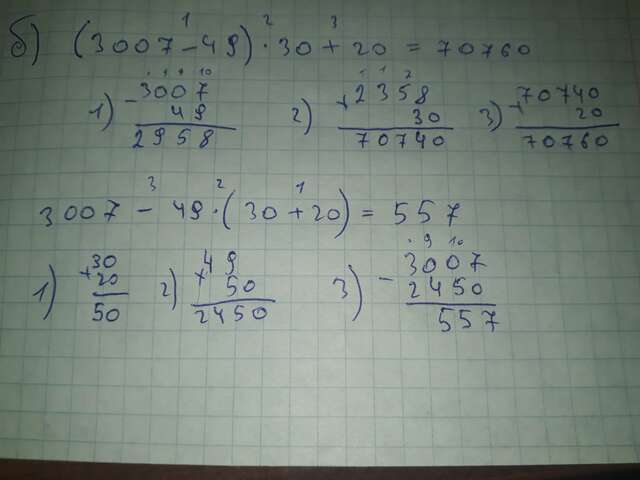 1 2 3
б) (3007 - 49) · 30 + 20 = 70760
· 9 9 10 1 1 2
1) - 3007 2) × 2358 3) + 70740
49 30 20
2958 70740 70760
3 2 1
3007 - 49 · (30 + 20) = 557
· 9 10
1) + 30 2) × 49 3) - 3007
20 50 2450
50 2450 557